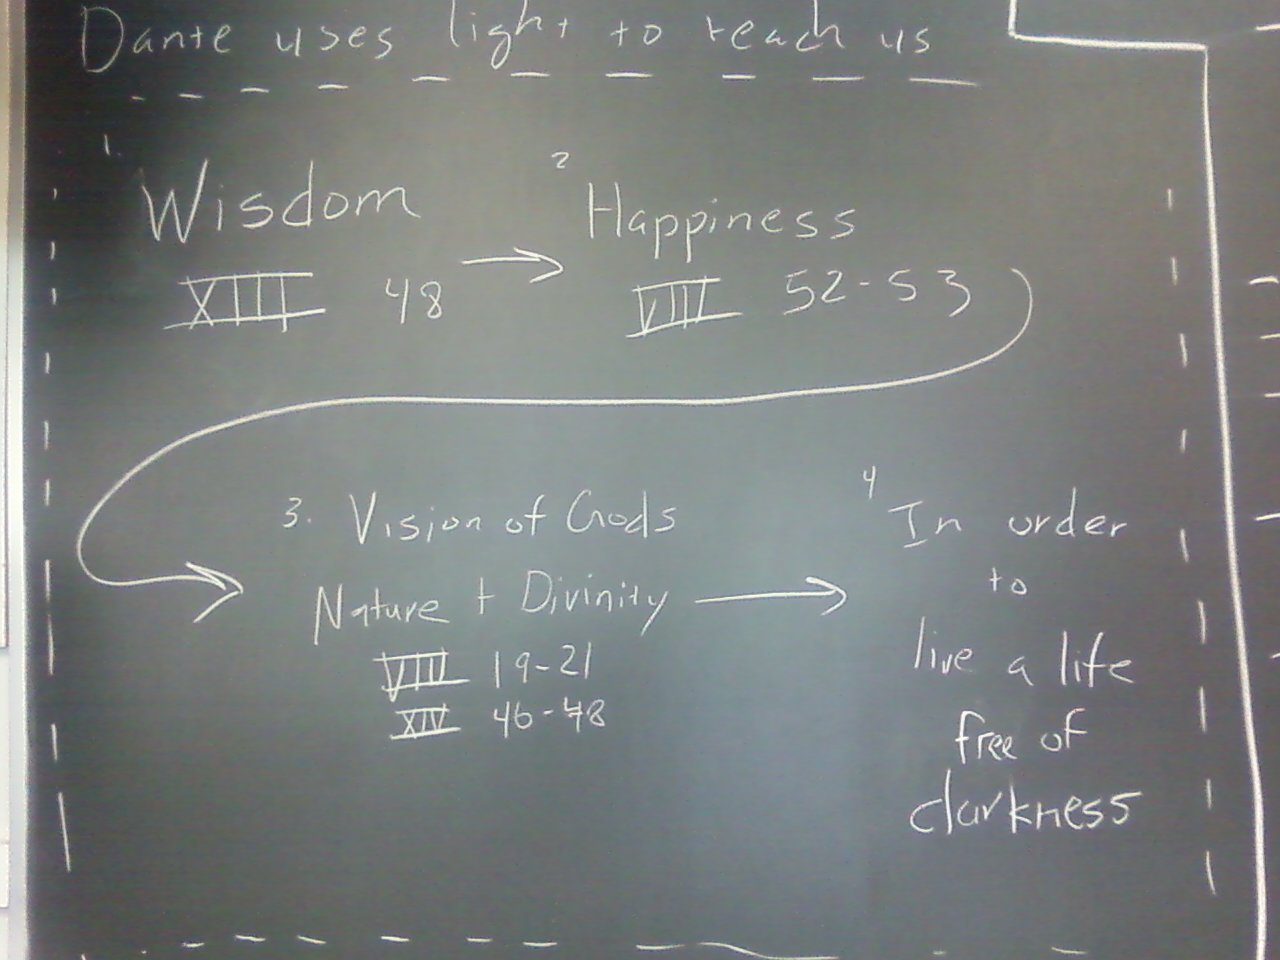 Dante uses light to teach us
1.
Wisdom
XIII 48
2
Happiness
VIII 52-53
3. Vision of Gods
Nature + Divinity
VIII 19-21
XIV 46-48
4
In order
to
live a life
free of
darkness